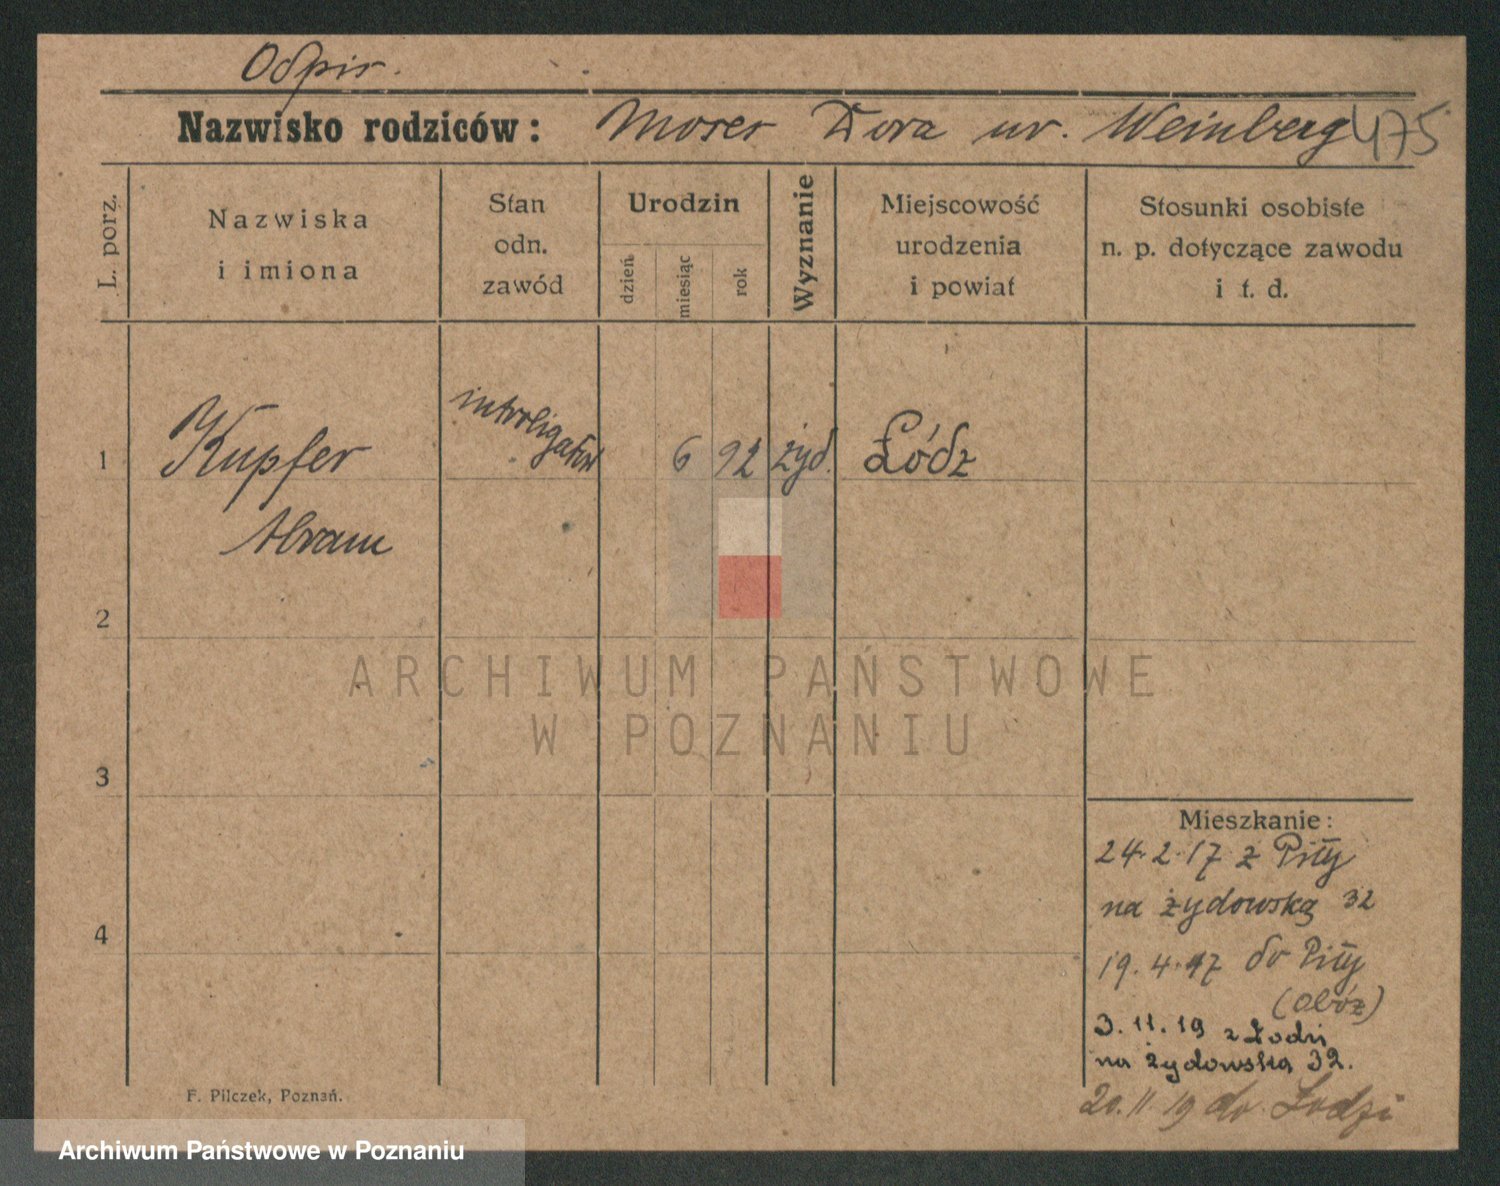 Odpis.
Nazwisko rodziców: Moser Dora ur. Weinberg 475
L. porz.
Nazwiska
i imiona
Stan
odn.
zawód
Urodzin
dzień
miesiąc
rok
Wyznanie
Miejscowość
urodzenia
i powiat
Stosunki osobiste
n. p. dotyczące zawodu
i t. d.
1 Kupfer introligator 6 92 żyd. Łódz
Abram
2
3
4
Mieszkanie:
24.2.17 z Piły
na żydowską 32
19.4.17 do Piły
(obóz)
3.11.19 z Łodzi
na żydowska 32.
20.11.19 do Łodzi
F. Pilczek, Poznań.
ARCHIWUM PAŃSTWOWE
W POZNANIU
Archiwum Państwowe w Poznaniu